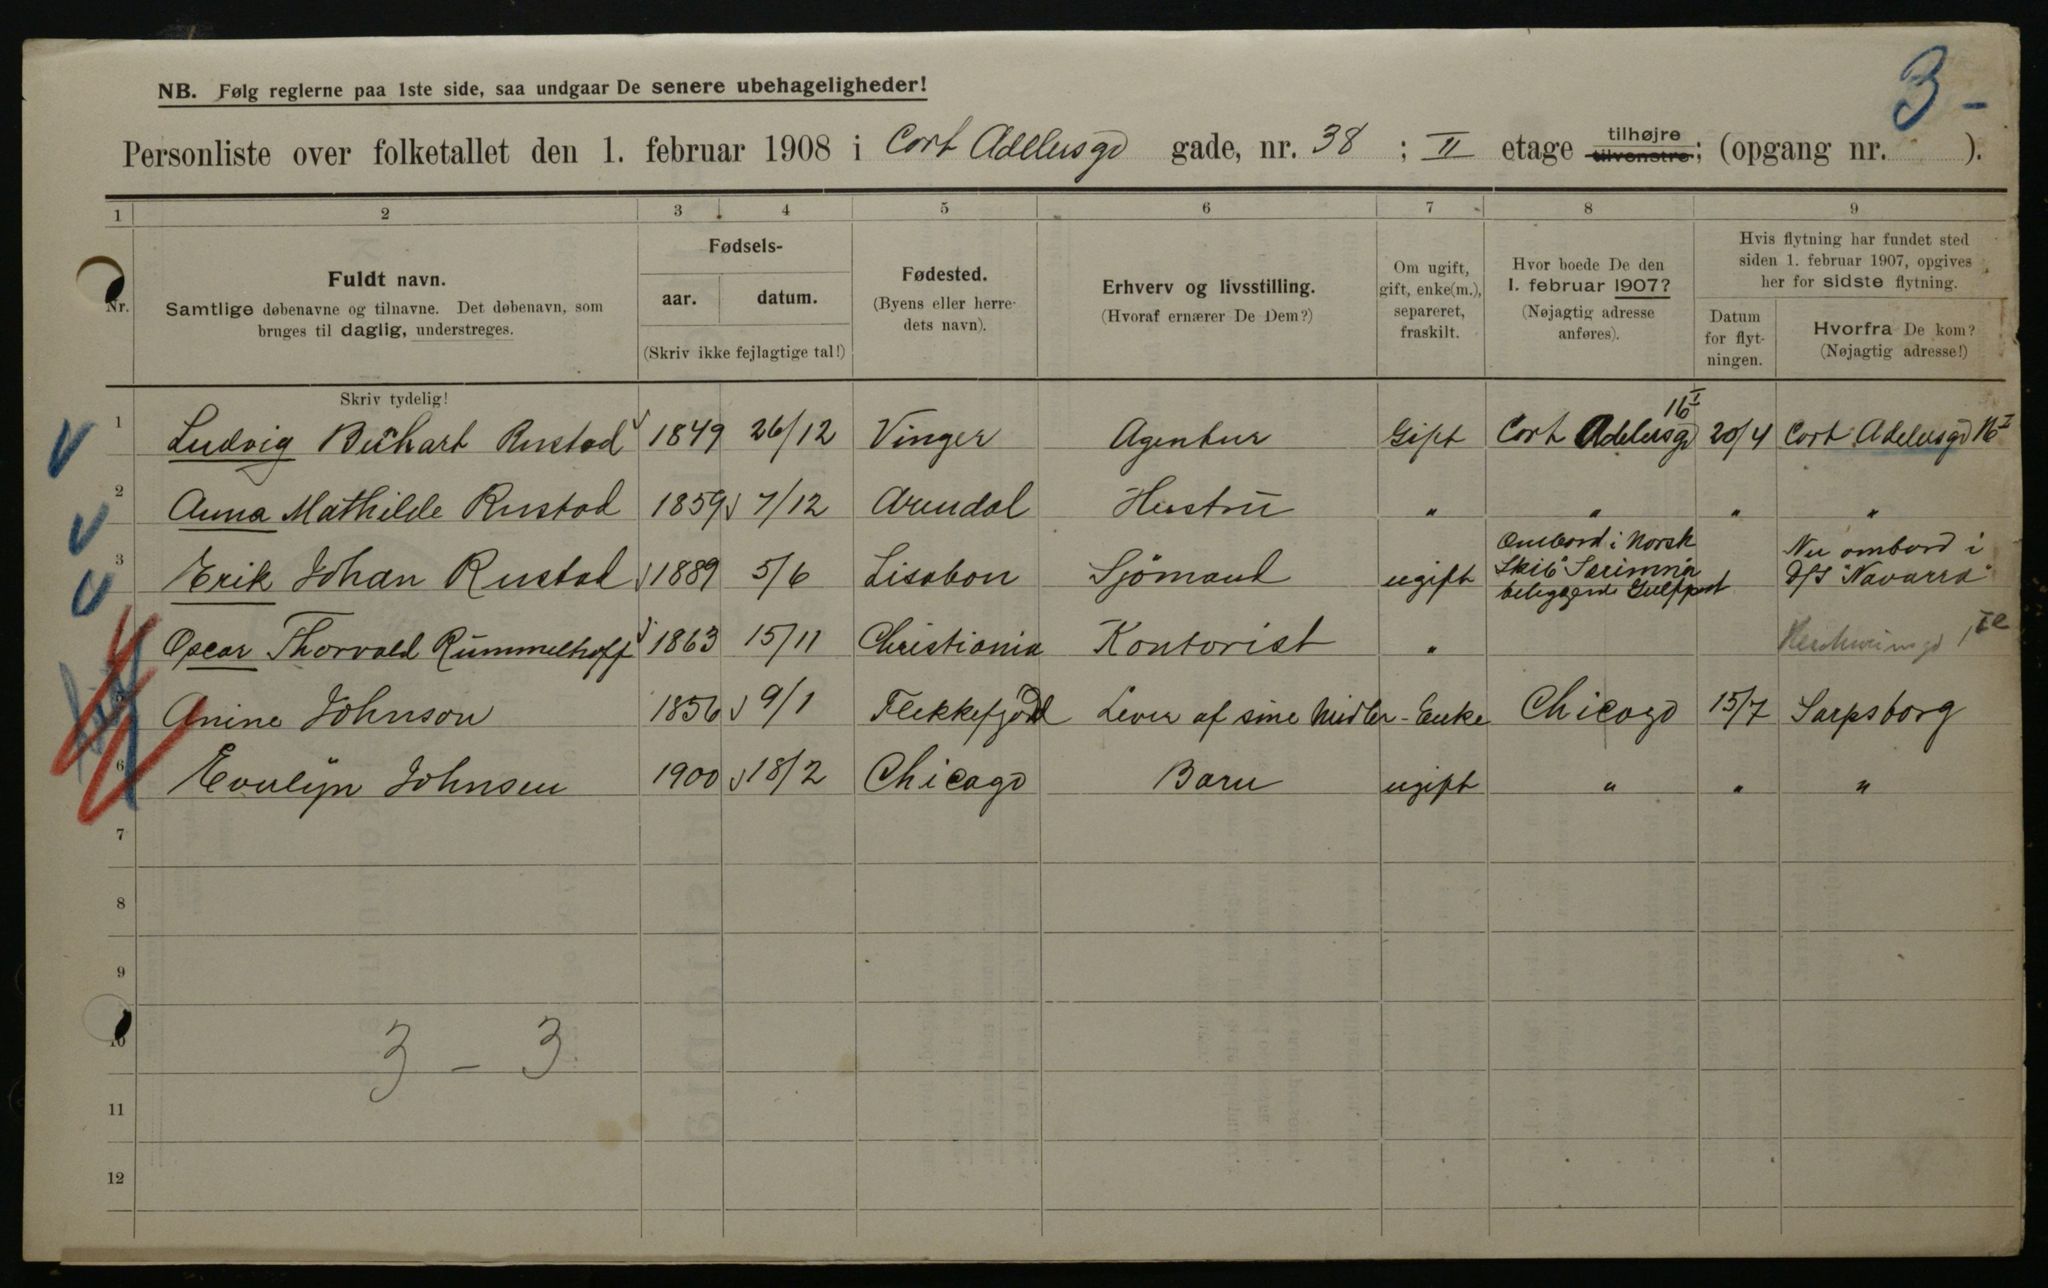 3 -
NB. Følg reglerne paa 1ste side, saa undgaar De senere ubehageligheder!
Personliste over folketallet den 1. februar 1908 i Cort Adelersgd gade, nr. 38 ; II etage tilhøjre tilvenstre; (opgang nr. ).
1 2 3 4 5 6 7 8 9
Nr.
Fuldt navn.
Samtlige døbenavne og tilnavne. Det døbenavn, som
bruges til daglig, understreges.
Skriv tydelig!
Fødsels-
aar. datum.
(Skriv ikke fejlagtige tal!)
Fødested.
(Byens eller herre-
dets navn).
Erhverv og livsstilling.
(Hvoraf ernærer De Dem?)
Om ugift,
gift, enke(m.),
separeret,
fraskilt.
Hvor boede De den
1. februar 1907?
(Nøjagtig adresse
anføres).
Hvis flytning har fundet sted
siden 1. februar 1907, opgives
her for sidste flytning.
Datum
for flyt-
ningen.
Hvorfra De kom?
(Nøjagtig adresse!)
1 Ludvig Rustad 1849 26/12 Vinger Agentur Gift Cort Adelersgd 16 I 20/4 Cort Adelersgd 16 I
2 Anna Mathilde Rustad 1859 7/12 Arendal Hustru " " " "
3 Erik Johan Rustad 1889 5/6 Lissbon Sjömand ugift Ombord i Norsk Skib Særimna Gulfport Nu ombord i D/S "Navarra"
Oscar Thorvald Rummelhoff 1863 15/11 Christiania Kontorist "
5 Anine Johnson 1856 9/1 Flekkefjord Lever af sine Midler - Enke Chicago 15/7 Sarpsborg
6 Evelyn Johnsen 1900 18/2 Chicago Barn ugift " " "
7
8
9
10
3 - 3
11
12